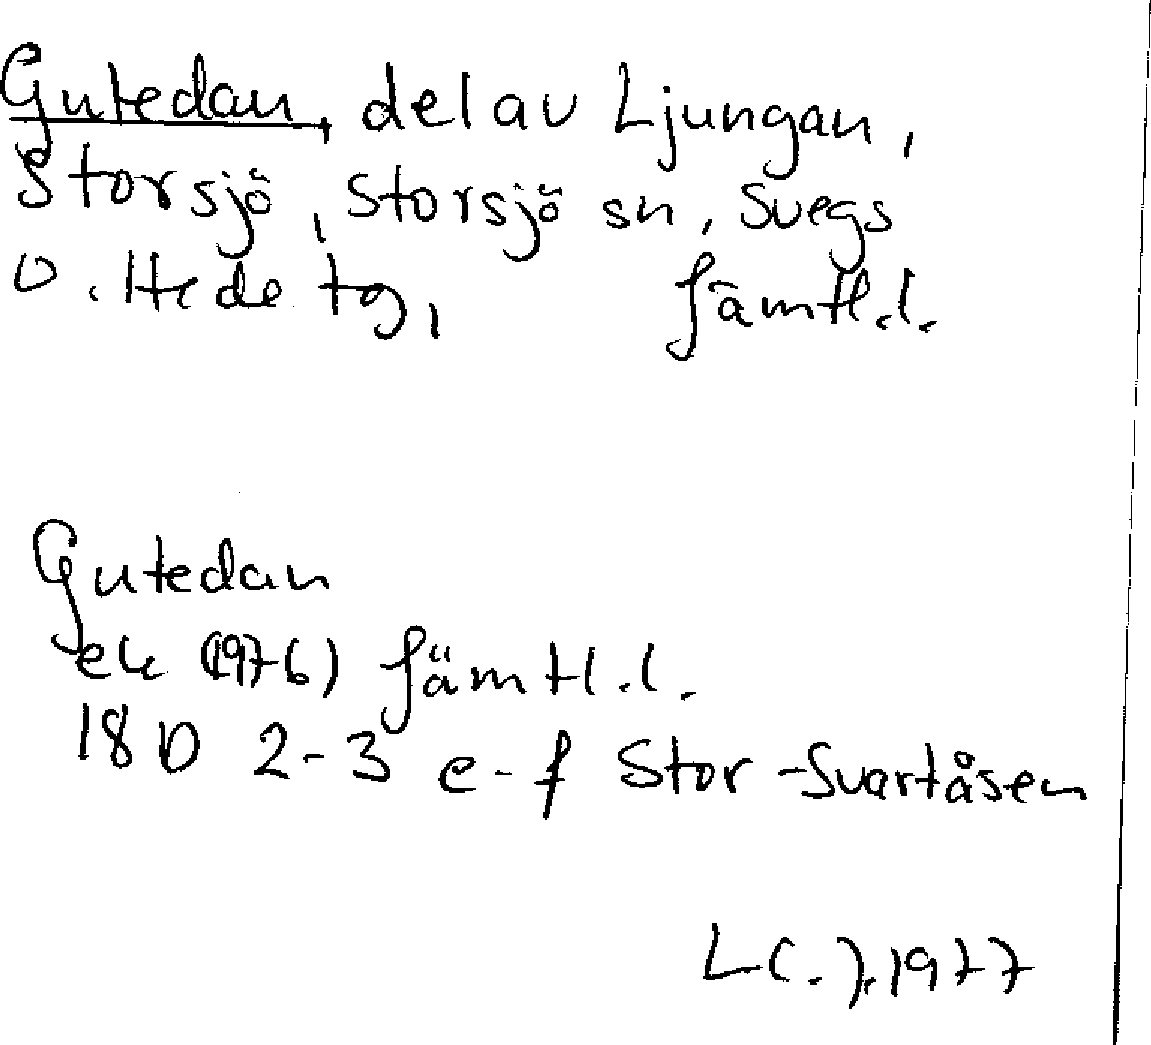 Gutedan, del av Ljungan,
Storsjö, Storsjö sn, Svegs
o. Hede tg, Jämtl. l.
Gutedan
ek (1976) Jämtl. l.
18 D 2-3 e-f Stor-Svartåsen
1977